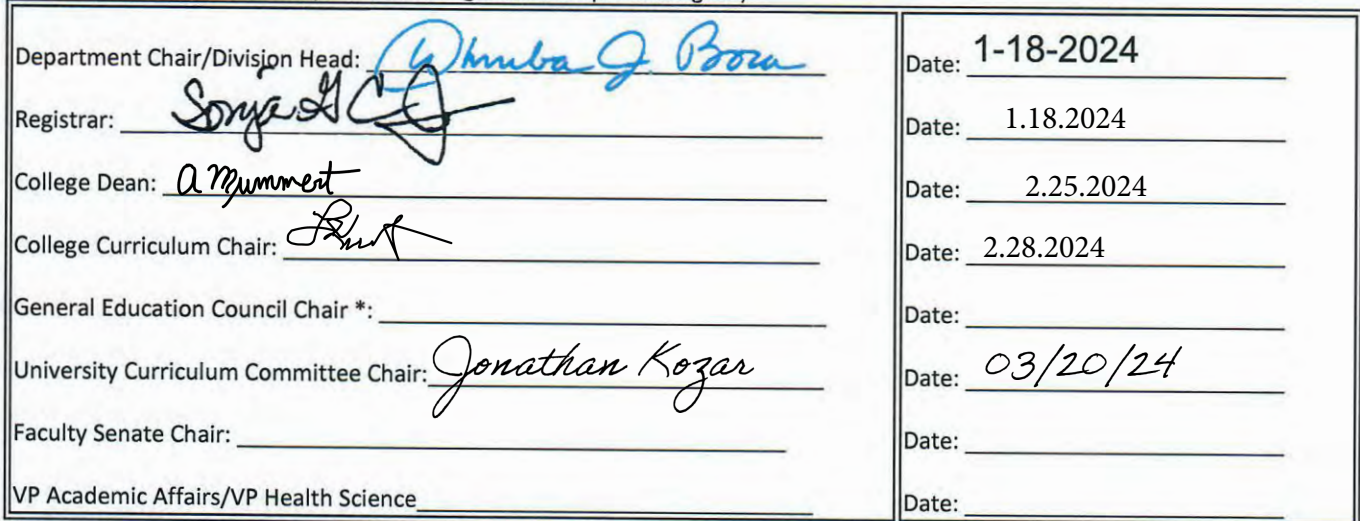 Department Chair/Division Head: J. Bora Date: 1-18-2024
Registrar: Sonja G Date: 1.18.2024
College Dean: a Mummert Date: 2.25.2024
College Curriculum Chair: Date: 2.28.2024
General Education Council Chair *: Date:
University Curriculum Committee Chair: Jonathan Kozar Date: 03/20/24
Faculty Senate Chair: Date:
VP Academic Affairs/VP Health Science Date: